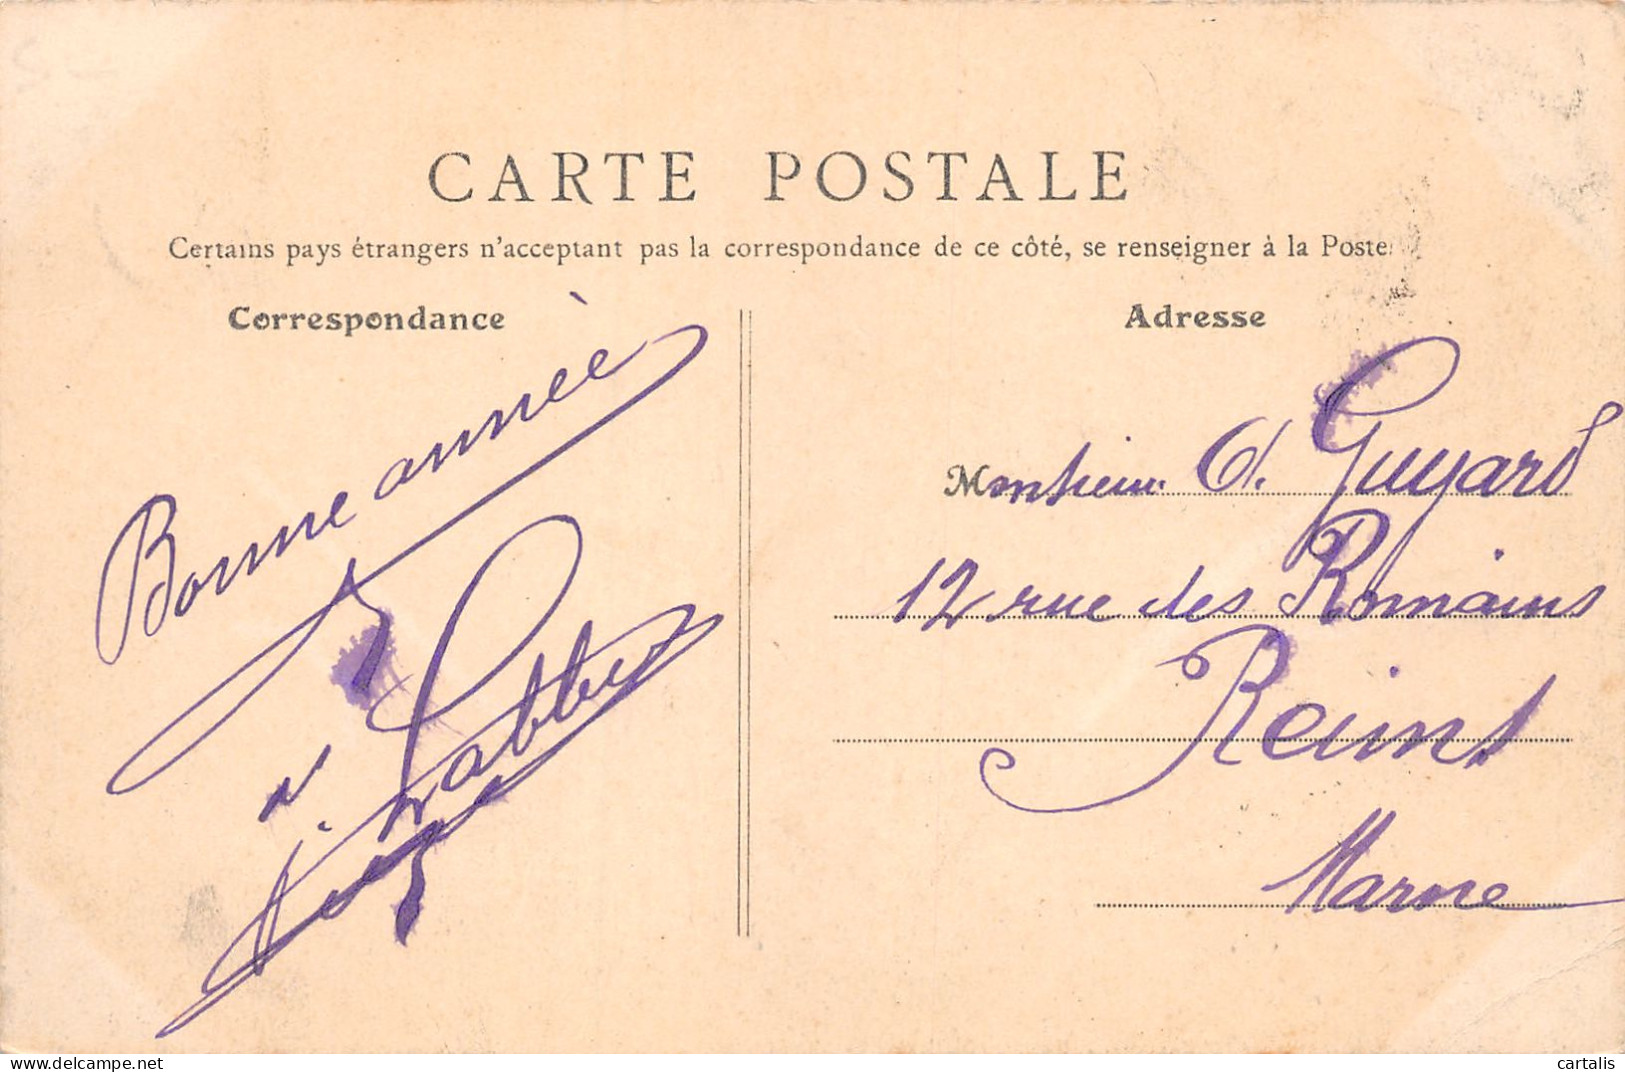 CARTE POSTALE
Certains pays étrangers n'acceptant pas la correspondance de ce côté, se renseigner à la Poste
Correspondance
Adresse
Bonne annèè
Labbé
Monsieur G. Guyard
12 rue des Romains
Reims
Marne
cartalis
www.delcampe.net